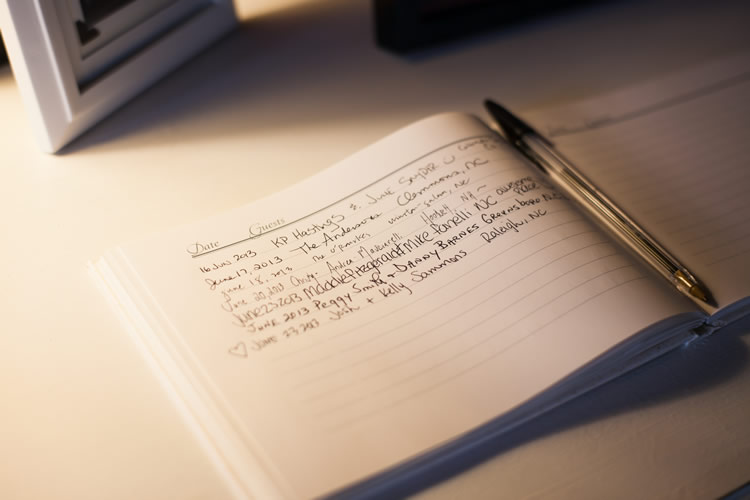 Date Guests
16 Jun 2013 KP Hastings & June Snyder
June 17, 2013 The Andersons Clemmons, NC
June 18, 2013 The O'Rourkes Winston-Salem, NC
June 20, 2013 Andrea NH
June 23 2013 Maddie Fitzgerald & Mike Fanelli NC awesome place
June 2013 Peggy Smith & Danny Barnes Greensboro, NC
♡ June 27, 2013 Josh & Kelly Sammons Raleigh, NC